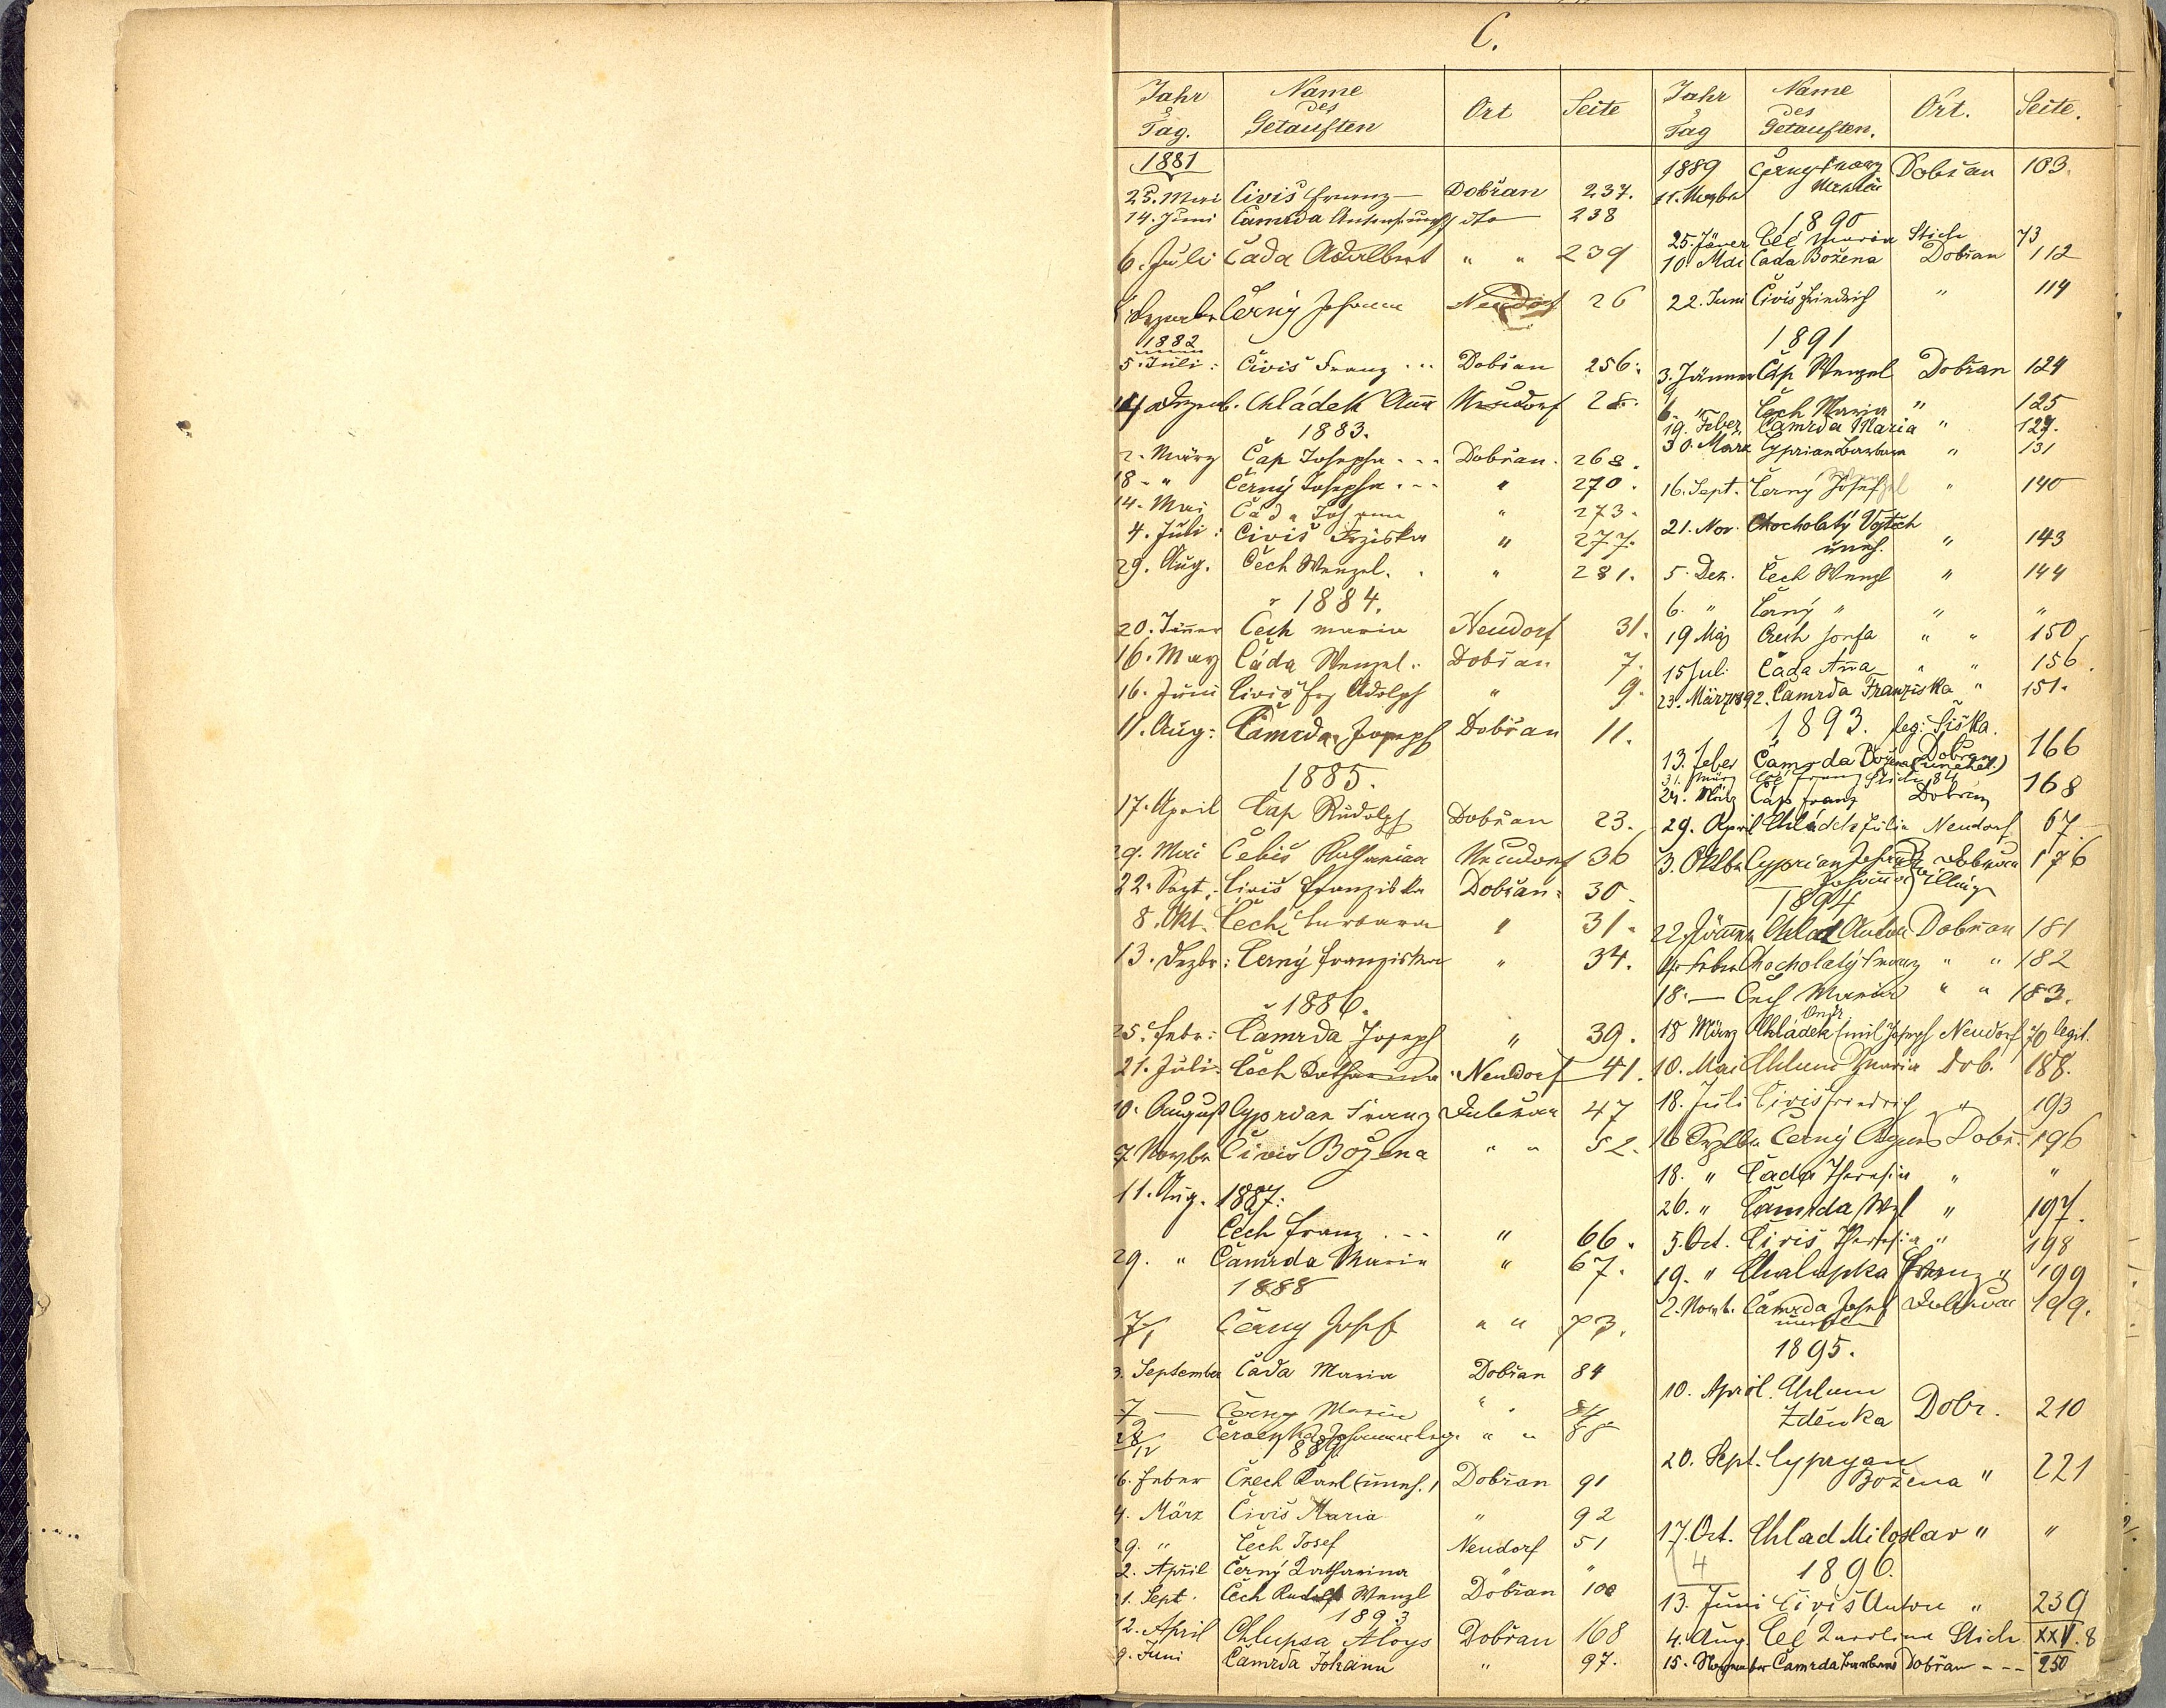 C.
Jahr & Tag. Name des Getauften Ort Seite
1881
25. Mai Civiš Franz Dobřan 237.
14. Juni Čamrda Anton dto 238
6. Juli Čada Adalbert " " 239
Černý Johann Neudorf 26
1882
5. Juli: Čiviš Franz Dobřan 256.
Chládek Anna Neudorf 28.
1883.
2. März Čap Josepha Dobřan. 268.
18. " Černý Josepha " 270.
14. Mai Čáda Johann " 273.
4. Juli: Čiviš Frziska " 277.
29. Aug. Čech Wenzel. " 281.
1884.
20. Jäner Čech Maria Neudorf 31.
16. May Čáda Wenzel. Dobřan 7.
16. Juni Čiviš Adolph " 9.
11. Aug: Čamrda Joseph Dobřan 11.
1885.
17. April Čap Rudolph Dobřan 23.
29. Mai Čebiš Neudorf 36
22. Sept. Čiviš Franziska Dobřan. 30.
8. Okt. Čech Barbara " 31.
13. Dezbr: Černý Franziska " 34.
1886.
25. Febr: Čamrda Joseph " 39.
21. Juli. Čech Katharina Neudorf 41.
10. August Cyprian Franz Dobřan 47
9. Novbr Čiviš Božena " " 52.
11. Aug. 1887:
Čech Franz " 66.
29. " Čamrda Maria " 67.
1888
7/1 Černy Josef " " 73.
3. September Čáda Maria Dobřan 84
7 — Černy Maria " "
28/12 " " 88
889
6. Feber Čzech Karl (uneh.) Dobřan 91
4. März Čiviš Maria " 92
29. " Čech Josef Neudorf 51
2. April Černý Katharina " "
21. Sept. Čech Rudolf Wenzl Dobřan 100
1893
12. April Chlupsa Aloys Dobřan 168
9. Juni Čamrda Johann " 97.
Jahr & Tag Name des Getauften. Ort. Seite.
1889 Černy Franz Dobřan 103.
1890
25. Jäner Čeč Maria Stich 73
10. Mai Čada Božena Dobřan 112
22. Juni Čiviš Friedrich " 114
1891
3. Jänner Čáp Wenzel Dobřan 124
6. " Čech Maria " 125
19. Feber Čamrda Maria " 127.
30. März Cyprian Barbara " 131
16. Sept. Černý Josef " 140
21. Nov. Chocholatý Vojtěch
uneh. " 143
5. Dez. Čech Wenzl " 144
6. " Černý " " "
19 Mäz Čzech Josefa " " 150.
15 Juli Čáda Anna " " 156.
23. März 1892. Čamrda Franziska " 151.
1893. leg: Šiška.
13. Feber Čamrda Božena (unehel.) Dobřan 166
31. März Čeč Franz Stich 84
24. März Čáp Franz Dobřan 168
29. April Chládek Julie Neudorf 67
3. Oktbr Cyprian Dobřan 176
Johanna Zwillinge
1894
22 Jänner Chlad Anton Dobřan 181
Chocholatý Franz " " 182
18. — Čech Maria " " 183.
18 März Chládek Emil Joseph Neudorf 70 legit.
10. Mai Chlum Maria Dob. 188.
18. Juli Čiviš Friedrich " 193
16 Černý Dobř. 196
18. " Čada Theresia " "
26. " Čamrda Wzl " 197.
5. Oct. Čiviš Theresia " 198
19. " Chalupka Franz " 199
2. Novb. Čamrda Josef Dobřan 199.
1895.
10. April. Chlum
Zdenka Dobr. 210
20. Sept. Cypryan
Božena " 221
17. Oct. Chlad Miloslav " "
4
1896.
13. Juni Čiviš Anton " 239
4. Aug. Čeč Karolina Stich XXV. 8
15. November Čamrda Barbara Dobřan --- 250